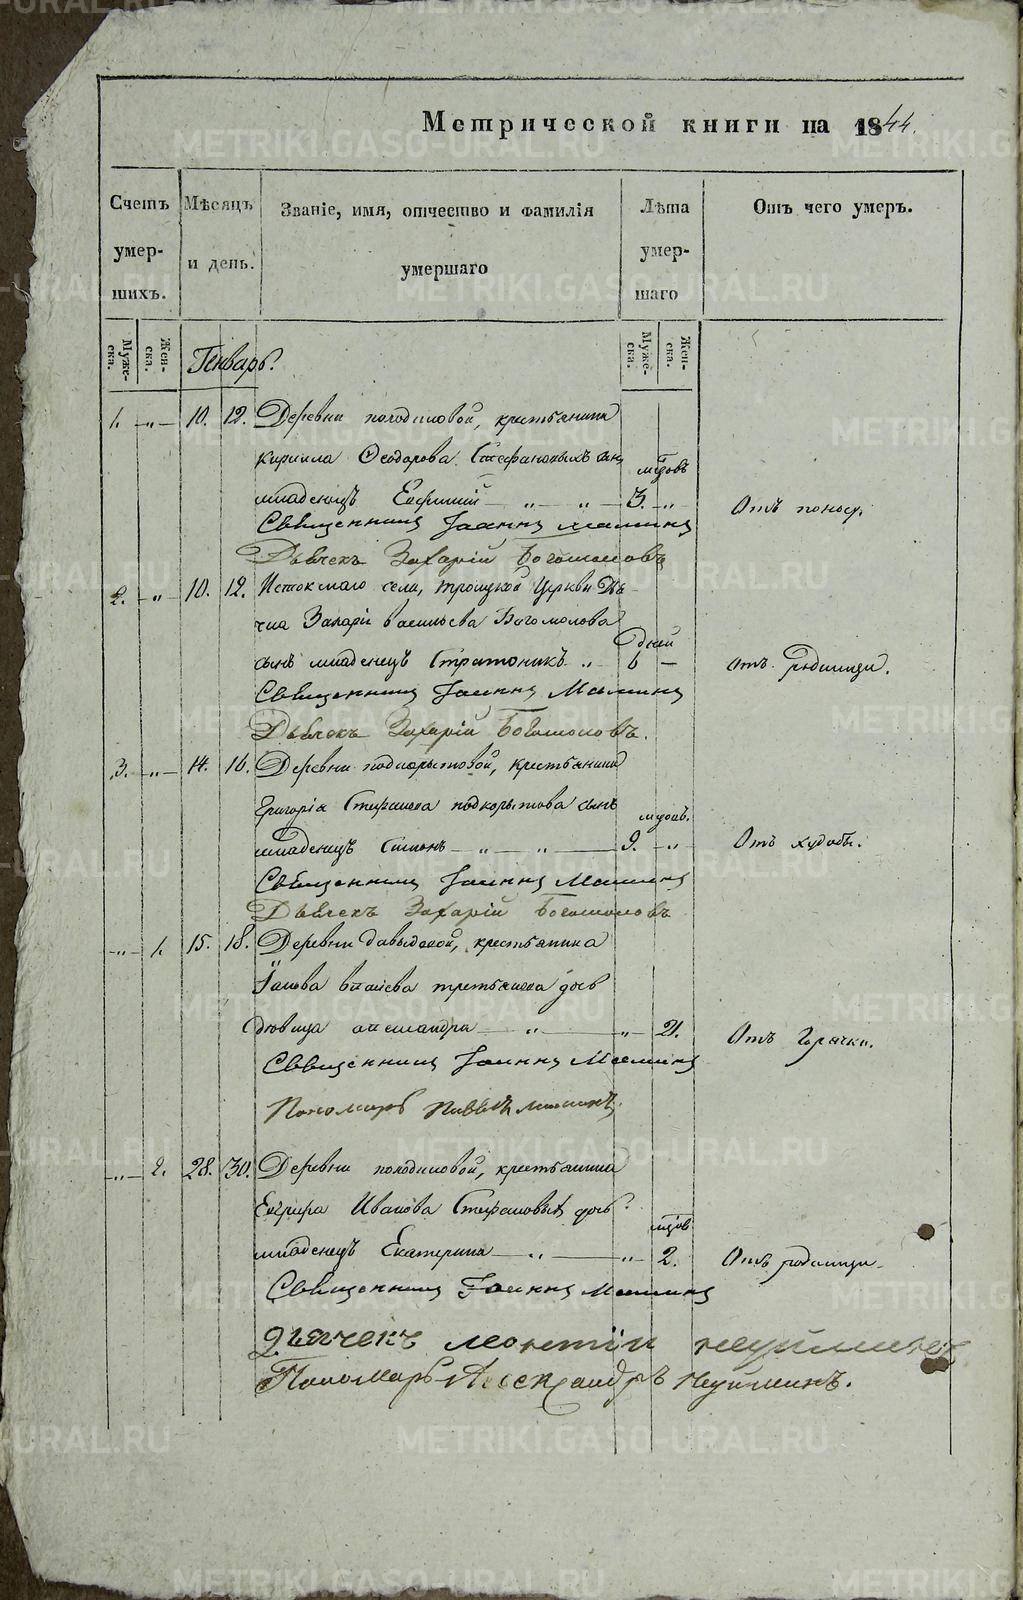 Метрической книги на 1844.
Счетъ умер-шихъ.
Мѣсяцъ и день.
Званіе, имя, отчество и фамилія умершаго
Лѣта умер-шаго
Отъ чего умеръ.
Муже-ска.
Жен-ска.
Генварь.
Муже-ска.
Жен-ска.
1. „ 10. 12. Деревни крестьянина
Кирилла Ѳеодорова Стефановыхъ сынъ
младенецъ Евфимій „ „ 3. „ Отъ поносу.
Священникъ Іоаннъ Маминъ
Дьячекъ Захарій Богомоловъ
2. „ 10. 12. Истокскаго села, Троицкой Церкви Дья-
чка Захарія Васильева Богомолова дней
сынъ младенецъ Стратоникъ „ 6 Отъ родимца.
Священникъ Іоаннъ Маминъ
Дьячекъ Захарій Богомоловъ.
3. „ 14. 16. Деревни Подкорытовой, крестьянина
Григорія Стефанова Подкорытова сынъ
младенецъ Симонъ „ „ 9. „ Отъ худобы.
Священникъ Іоаннъ Маминъ
Дьячекъ Захарій Богомоловъ
„ 1. 15. 18. Деревни Давыдовой, крестьянина
Третьякова дочь
дѣвица Александра „ „ 21. Отъ Горячки.
Священникъ Іоаннъ Маминъ
Пономарь
„ 2. 28. 30. Деревни крестьянина
Ивана Стефановыхъ дочь
младенецъ Екатерина „ „ 2. Отъ родимца.
Священникъ Іоаннъ Маминъ
Дьячекъ Леонтій Неуйминъ
Пономарь Александръ Неуйминъ.
METRIKI.GASO-URAL.RU